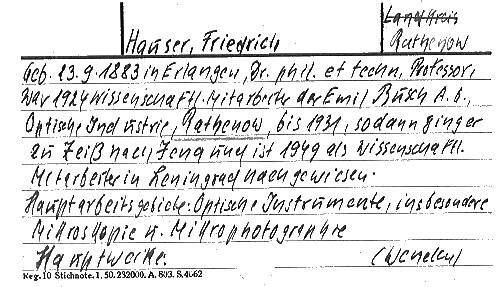 Landkreis
Hauser, Friedrich Rathenow
Geb. 13.9.1883 in Erlangen, Dr. phil. et techn., Professor,
war 1924 wissenschaftl. Mitarbeiter der Emil Busch A.G.,
Optische Industrie, Rathenow, bis 1931, sodann ging er
zu Zeiß nach Jena und ist 1949 als wissenschaftl.
Mitarbeiter in Leningrad nachgewiesen.
Hauptarbeitsgebiete: Optische Instrumente, insbesondere
Mikroskopie u. Mikrophotographie
Hauptwerke:
Reg. 10 Stichnote. 1, 50. 232000. A. 803. S. 4062